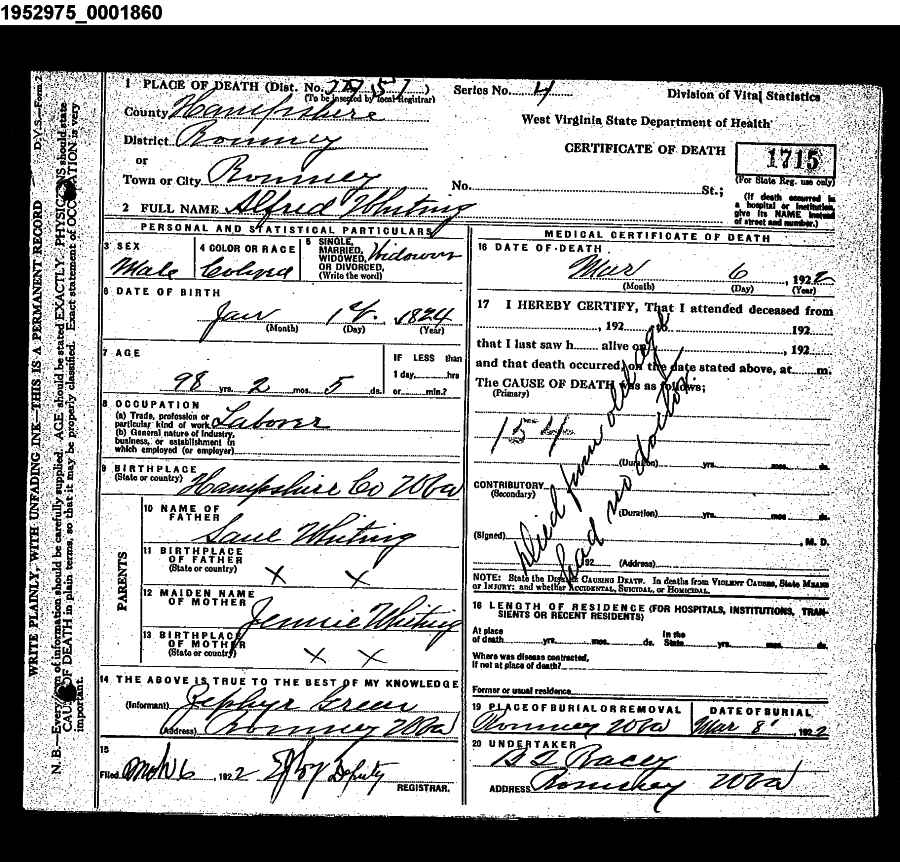 1952975_0001860
1 PLACE OF DEATH (Dist. No. 2751) Series No. 4 Division of Vital Statistics
(To be inserted by local Registrar)
County Hampshire
West Virginia State Department of Health
District Romney
or
CERTIFICATE OF DEATH 1715
Town or City Romney No. St.; (For State Reg. use only)
(If death occurred in a hospital or institution, give its NAME instead of street and number.)
2 FULL NAME Alfred Whiting
PERSONAL AND STATISTICAL PARTICULARS
3 SEX Male
4 COLOR OR RACE Colored
5 SINGLE, MARRIED, WIDOWED, OR DIVORCED, (Write the word) Widower
6 DATE OF BIRTH
Jan 1st 1824
(Month) (Day) (Year)
7 AGE
98 yrs. 2 mos. 5 ds.
IF LESS than
1 day hrs
or min.?
8 OCCUPATION
(a) Trade, profession or particular kind of work Laborer
(b) General nature of industry,
business, or establishment in
which employed (or employer)
9 BIRTHPLACE
(State or country) Hampshire Co WVa
PARENTS
10 NAME OF FATHER
Saul Whiting
11 BIRTHPLACE OF FATHER
(State or country) X X
12 MAIDEN NAME OF MOTHER
Jennie Whiting
13 BIRTHPLACE OF MOTHER
(State or country) X X
14 THE ABOVE IS TRUE TO THE BEST OF MY KNOWLEDGE
(Informant) Zephyr Green
(Address) Romney WVa
15
Filed Mch 6, 1922 Deputy
REGISTRAR.
MEDICAL CERTIFICATE OF DEATH
16 DATE OF DEATH
Mar 6, 1922
(Month) (Day) (Year)
17 I HEREBY CERTIFY, That I attended deceased from
, 192 to 192
that I last saw h alive on , 192
and that death occurred, on the date stated above, at m.
The CAUSE OF DEATH was as follows;
(Primary)
154
Died from old age
had no doctor
(Duration) yrs. mos. ds.
CONTRIBUTORY
(Secondary)
(Duration) yrs. mos. ds.
(Signed) , M. D.
192 (Address)
NOTE: State the DISEASE CAUSING DEATH. In deaths from VIOLENT CAUSES, State MEANS
OF INJURY: and whether ACCIDENTAL, SUICIDAL, OR HOMICIDAL.
18 LENGTH OF RESIDENCE (FOR HOSPITALS, INSTITUTIONS, TRAN-
SIENTS OR RECENT RESIDENTS)
At place of death yrs. mos. ds. In the State yrs. mos. ds.
Where was disease contracted,
If not at place of death?
Former or usual residence
19 PLACE OF BURIAL OR REMOVAL
Romney WVa
DATE OF BURIAL
Mar 8 1922
20 UNDERTAKER
Racey
ADDRESS Romney WVa
WRITE PLAINLY, WITH UNFADING INK—THIS IS A PERMANENT RECORD
N. B.—Every item of information should be carefully supplied. AGE should be stated EXACTLY. PHYSICIANS should state
CAUSE OF DEATH in plain terms, so that it may be properly classified. Exact statement of OCCUPATION is very
important.